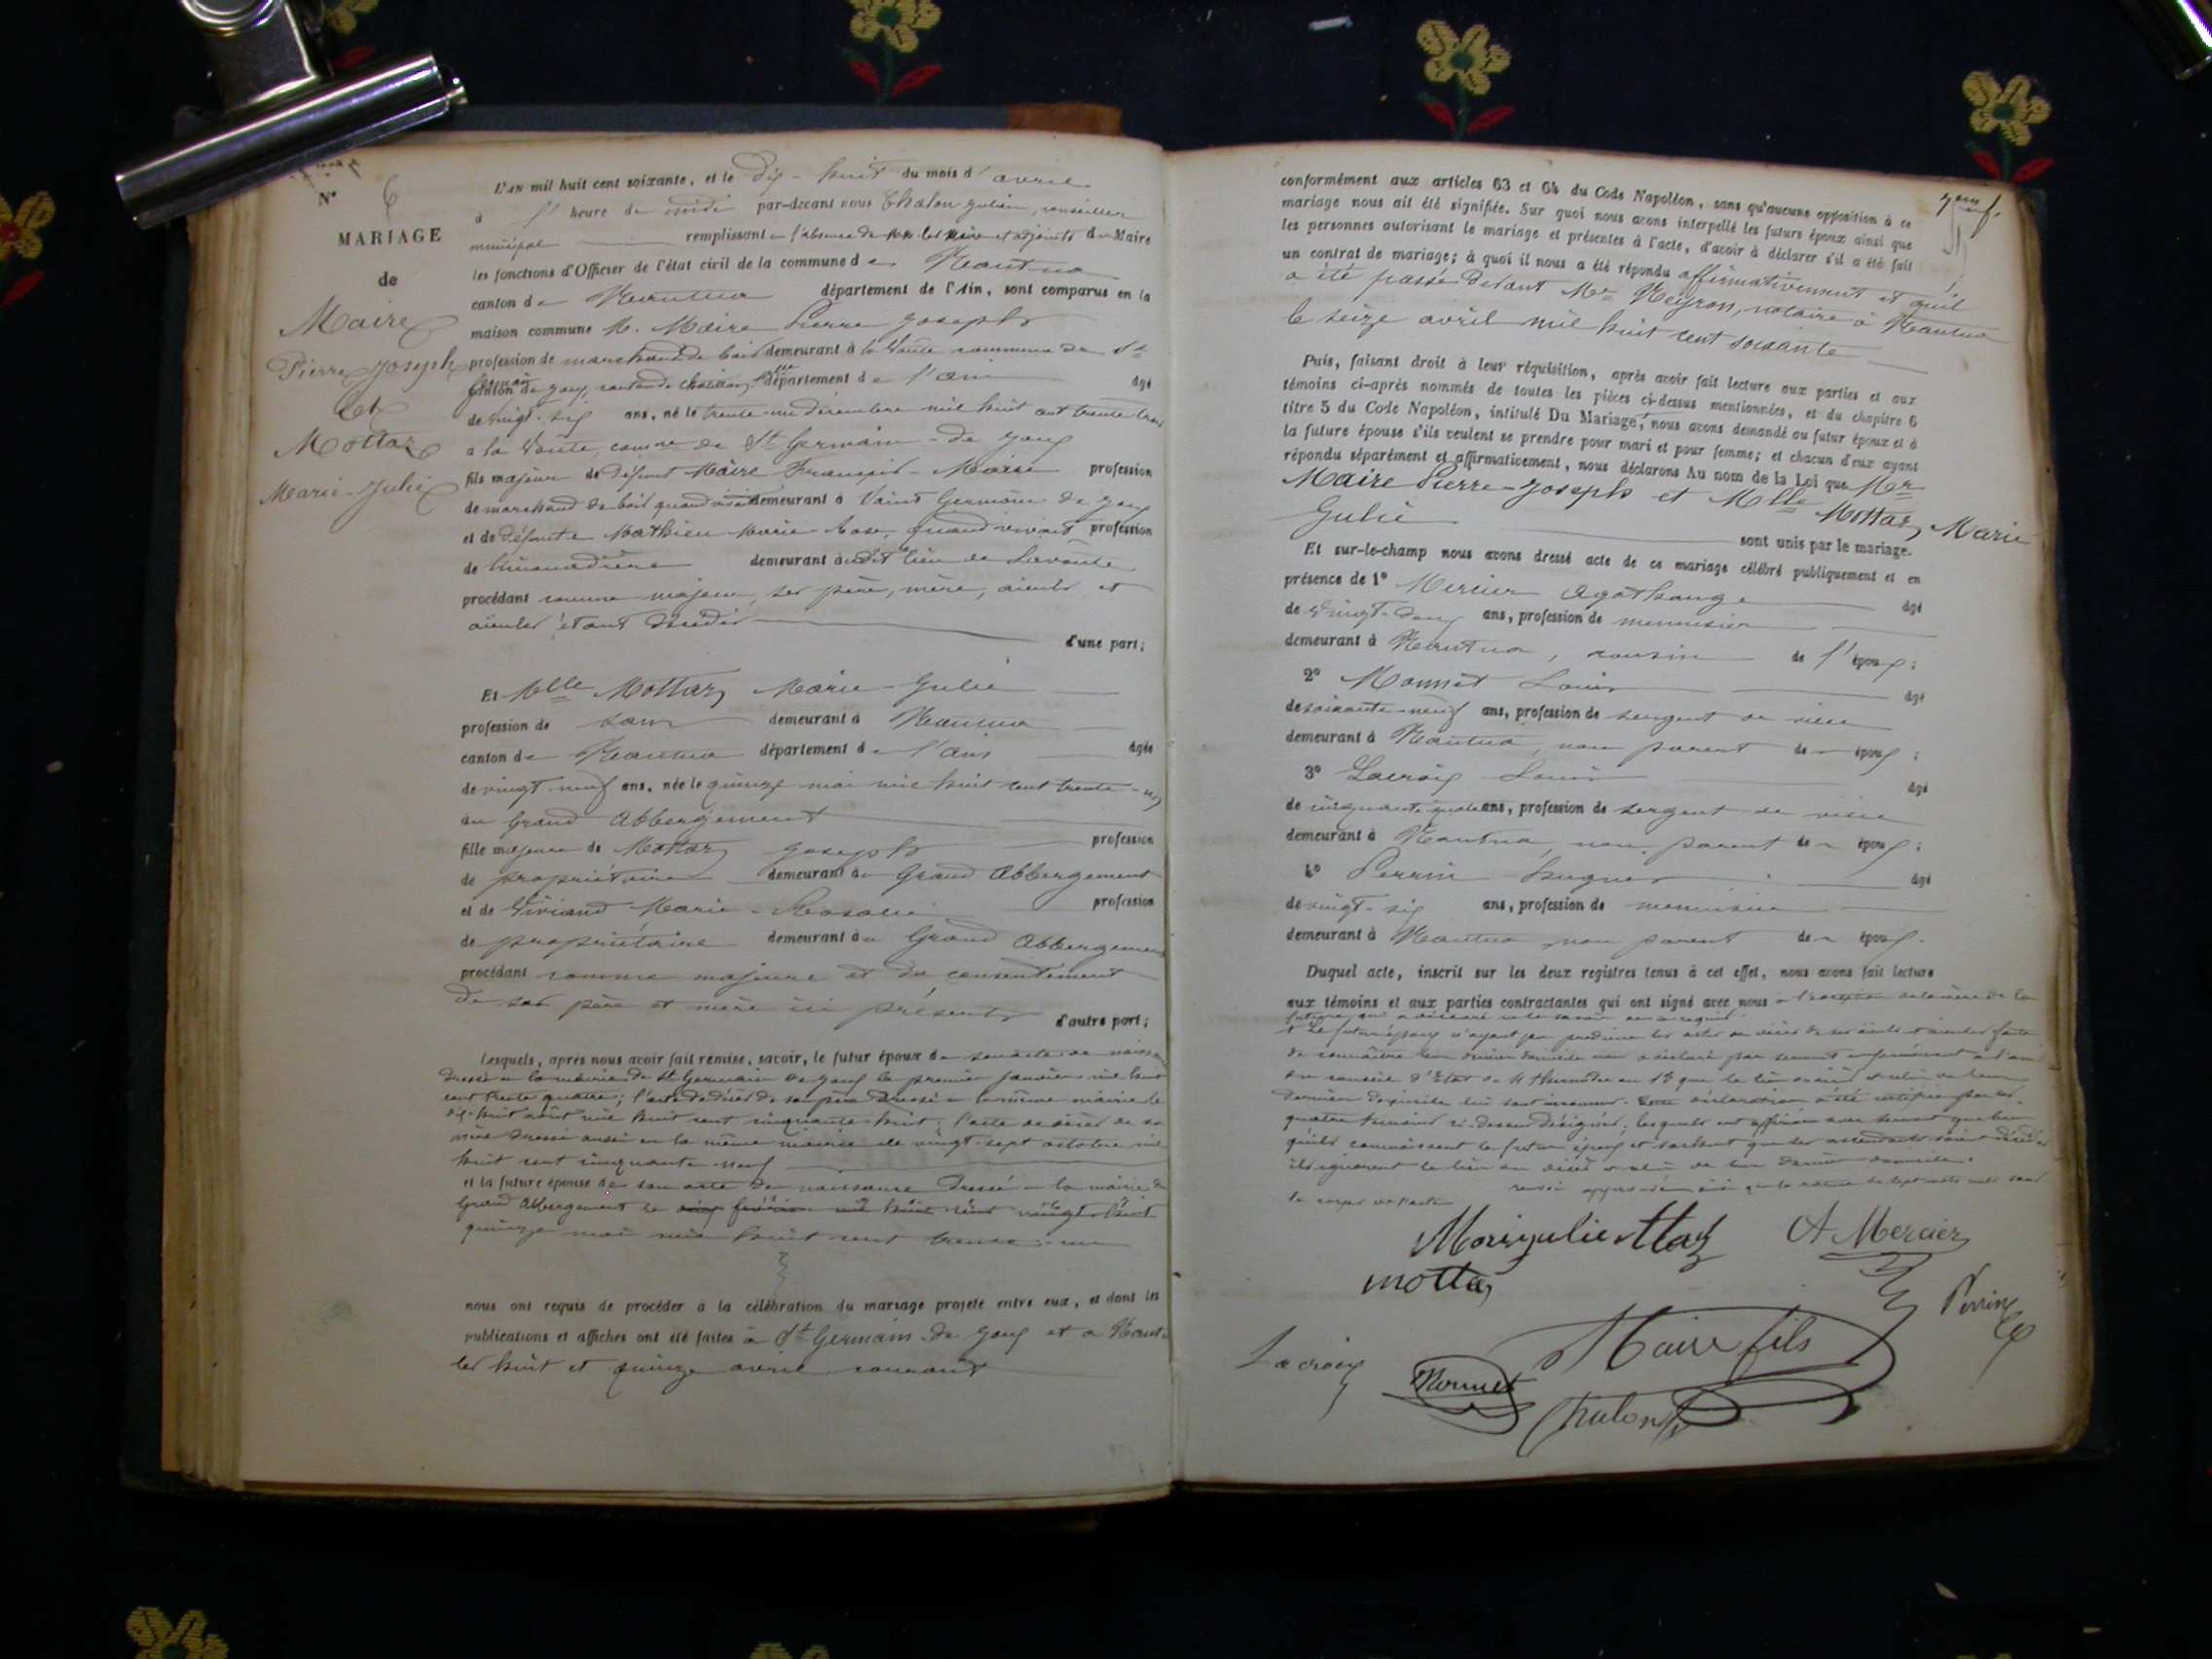 N° 6
MARIAGE
de
Maire
Pierre Joseph
Et
Mottaz
Marie-Julie
L'AN mil huit cent soixante, et le dix-huit du mois d'avril
à l' heure de midi par-devant nous Chalon Julien, conseiller
municipal remplissant en l'absence de MM. les Maire et adjoints du Maire
les fonctions d'Officier de l'état civil de la commune de Nantua
canton de Nantua département de l'Ain, sont comparus en la
maison commune M. Maire Pierre Joseph
profession de marchand de bois demeurant à la Voûte commune de St
Germain de Joux, canton de Chatillon, département de l'ain âgé
de vingt-six ans, né le trente-un décembre mil huit cent trente-trois
a la Voute, comne de St Germain-de Joux
fils majeur de défunt Maire François-Marie profession
de marchand de bois quand vivait demeurant à Saint Germain de Joux
et de défunte Mathieu Marie-Rose, quand vivait profession
de limonadière demeurant au dit lieu de Lavoûte
procédant comme majeur, ses père, mère, aieuls et
aieules étant décédés
d'une part;
Et Melle Mottaz Marie-Julie
profession de sans demeurant à Nantua
canton de Nantua département de l'ain âgée
de vingt-neuf ans, née le quinze mai mil huit cent trente-un
au Grand Abbergement
fille majeure de Mottaz Joseph profession
de propriétaire demeurant au Grand Abbergement
et de Viviand Marie-Rosalie profession
de propriétaire demeurant au Grand Abbergement
procédant comme majeure et du consentement
de ses père et mère ici présents
d'autre part;
Lesquels, après nous avoir fait remise, savoir, le futur époux de son acte de naissance
dressé en la mairie de St Germain de Joux le premier janvier mil huit
cent trente quatre; l'acte de décès de son père dressé en la même mairie le
dix-huit août mil huit cent cinquante-huit; l'acte de décès de sa
mère dressé aussi en la même mairie le vingt-sept octobre mil
huit cent cinquante-neuf
et la future épouse de son acte de naissance dressé en la mairie du
Grand Abbergement le cinq février mil huit cent vingt-huit
quinze mai mil huit cent trente-un
nous ont requis de procéder à la célébration du mariage projeté entre eux, et dont les
publications et affiches ont été faites à St Germain-de Joux et a Nantua
les huit et quinze avril courant
conformément aux articles 63 et 64 du Code Napoléon, sans qu'aucune opposition à ce
mariage nous ait été signifiée. Sur quoi nous avons interpellé les futurs époux ainsi que
les personnes autorisant le mariage et présentes à l'acte, d'avoir à déclarer s'il a été fait
un contrat de mariage; à quoi il nous a été répondu affirmativement et qu'il
a été passé devant Me Neyron, notaire à Nantua
le seize avril mil huit cent soixante
Puis, faisant droit à leur réquisition, après avoir fait lecture aux parties et aux
témoins ci-après nommés de toutes les pièces ci-dessus mentionnées, et du chapitre 6
titre 5 du Code Napoléon, intitulé Du Mariage, nous avons demandé au futur époux et à
la future épouse s'ils veulent se prendre pour mari et pour femme; et chacun d'eux ayant
répondu séparément et affirmativement, nous déclarons Au nom de la Loi que Mr
Maire Pierre-Joseph et Melle Mottaz Marie
Julie sont unis par le mariage.
Et sur-le-champ nous avons dressé acte de ce mariage célébré publiquement et en
présence de 1° Mercier Agathange âgé
de vingt-deux ans, profession de menuisier
demeurant à Nantua, cousin de l'époux;
2° Monnet Louis âgé
de soixante-neuf ans, profession de sergent de ville
demeurant à Nantua, non parent des époux;
3° Lacroix Louis âgé
de cinquante-quatre ans, profession de sergent de ville
demeurant à Nantua, non parent des époux;
4° Perrin Hugues âgé
de vingt-six ans, profession de menuisier
demeurant à Nantua non parent des époux.
Duquel acte, inscrit sur les deux registres tenus à cet effet, nous avons fait lecture
aux témoins et aux parties contractantes qui ont signé avec nous à l'exception de la mère de la
future qui a déclaré ne le savoir de ce requis.
Le futur époux n'ayant pu produire les actes de décès de ses aieuls et aieules faute
de connaître leur dernier domicile nous a déclaré par serment conformément à l'avis
du conseil d'Etat du 4 thermidor an 13 que le lieu du décès et celui de leur
dernier domicile lui sont inconnus. Cette déclaration a été certifiée par les
quatre témoins ci-dessus désignés, lesquels ont affirmé avec serment que bien
qu'ils connaissent le futur époux et sachant que ses ascendants soient décédés
ils ignorent le lieu du décès et celui de leur dernier domicile.
renvoi approuvé ainsi que la rature de sept mots nuls dans
le corps de l'acte
Marie julie Mottaz A Mercier
mottaz
Perrin
Maire fils
Lacroix
Monnet
Chalon